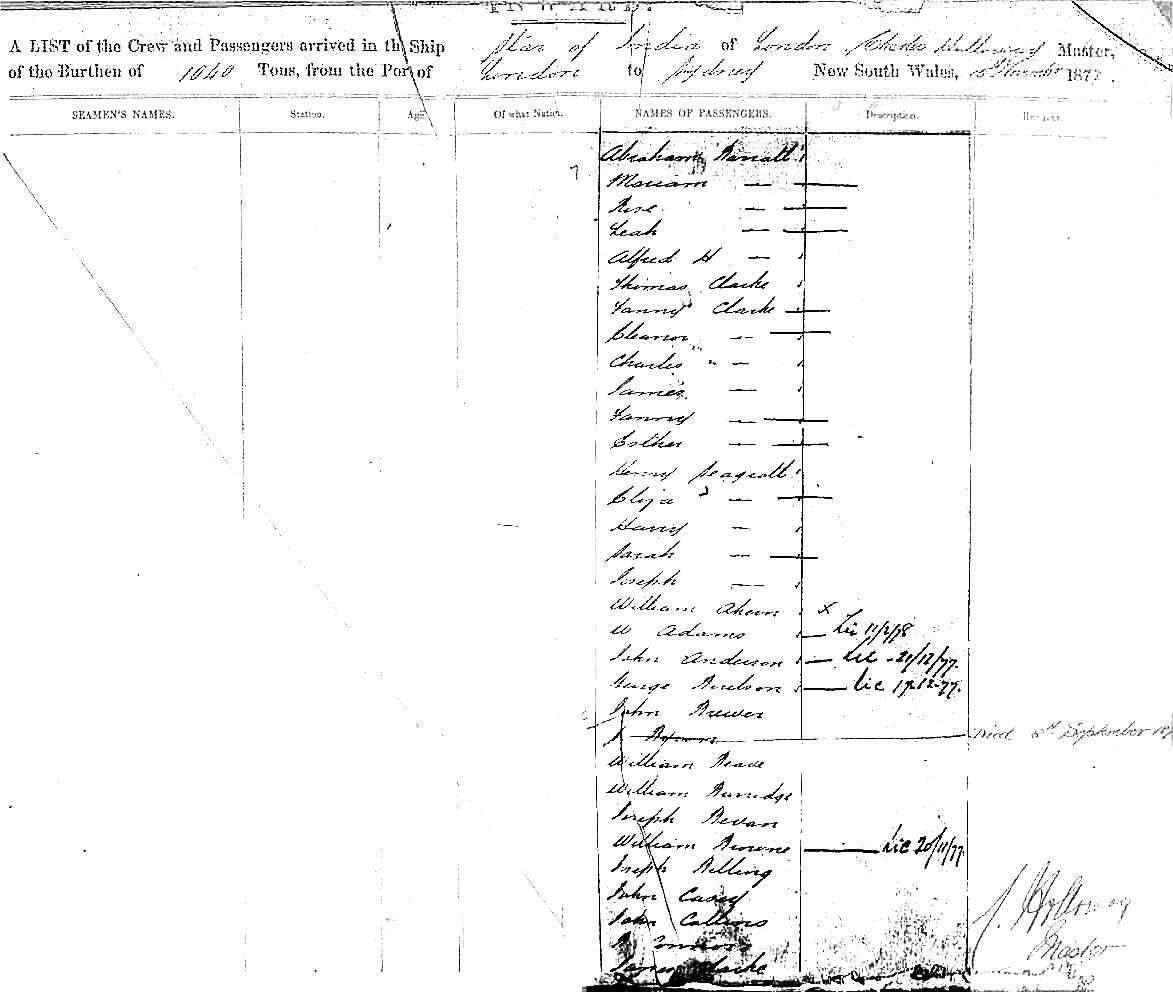 INWARD.
A LIST of the Crew and Passengers arrived in the Ship Star of India of London Charles Holloway Master,
of the Burthen of 1040 Tons, from the Port of London to Sydney New South Wales, 1877.
SEAMEN'S NAMES. Station. Age. Of what Nation. NAMES OF PASSENGERS. Description. Remarks.
Abraham
Mariam —
Rose —
Leah —
Alfred H —
Thomas Clarke
Fanny Clarke
Eleanor —
Charles " —
James —
Fanny —
Esther —
Henry
Eliza —
Harry —
Sarah —
Joseph —
William Ahern x
W Adams — Lic 11/2/78
John Anderson — Lic - 20/12/77.
George — Lic 17-12-77.
John Brewer
J Died 5th September
William
William Burridge
Joseph Bevan
William Browne — Lic 20/11/77.
Joseph Billing
John Casey
John Collins
Connors
James Clarke
Holloway
Master